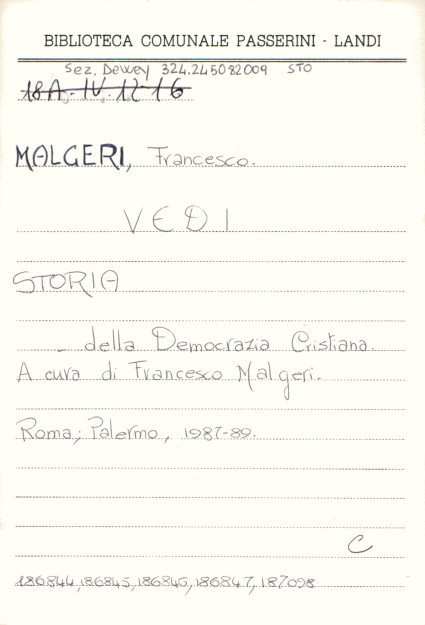 BIBLIOTECA COMUNALE PASSERINI - LANDI
Sez. Dewey 324.245082009 STO
18A.-IV.1216
MALGERI, Francesco.
VEDI
STORIA
- della Democrazia Cristiana.
A cura di Francesco Malgeri.
Roma; Palermo, 1987-89.
C
186844,186845,186846,186847,187098